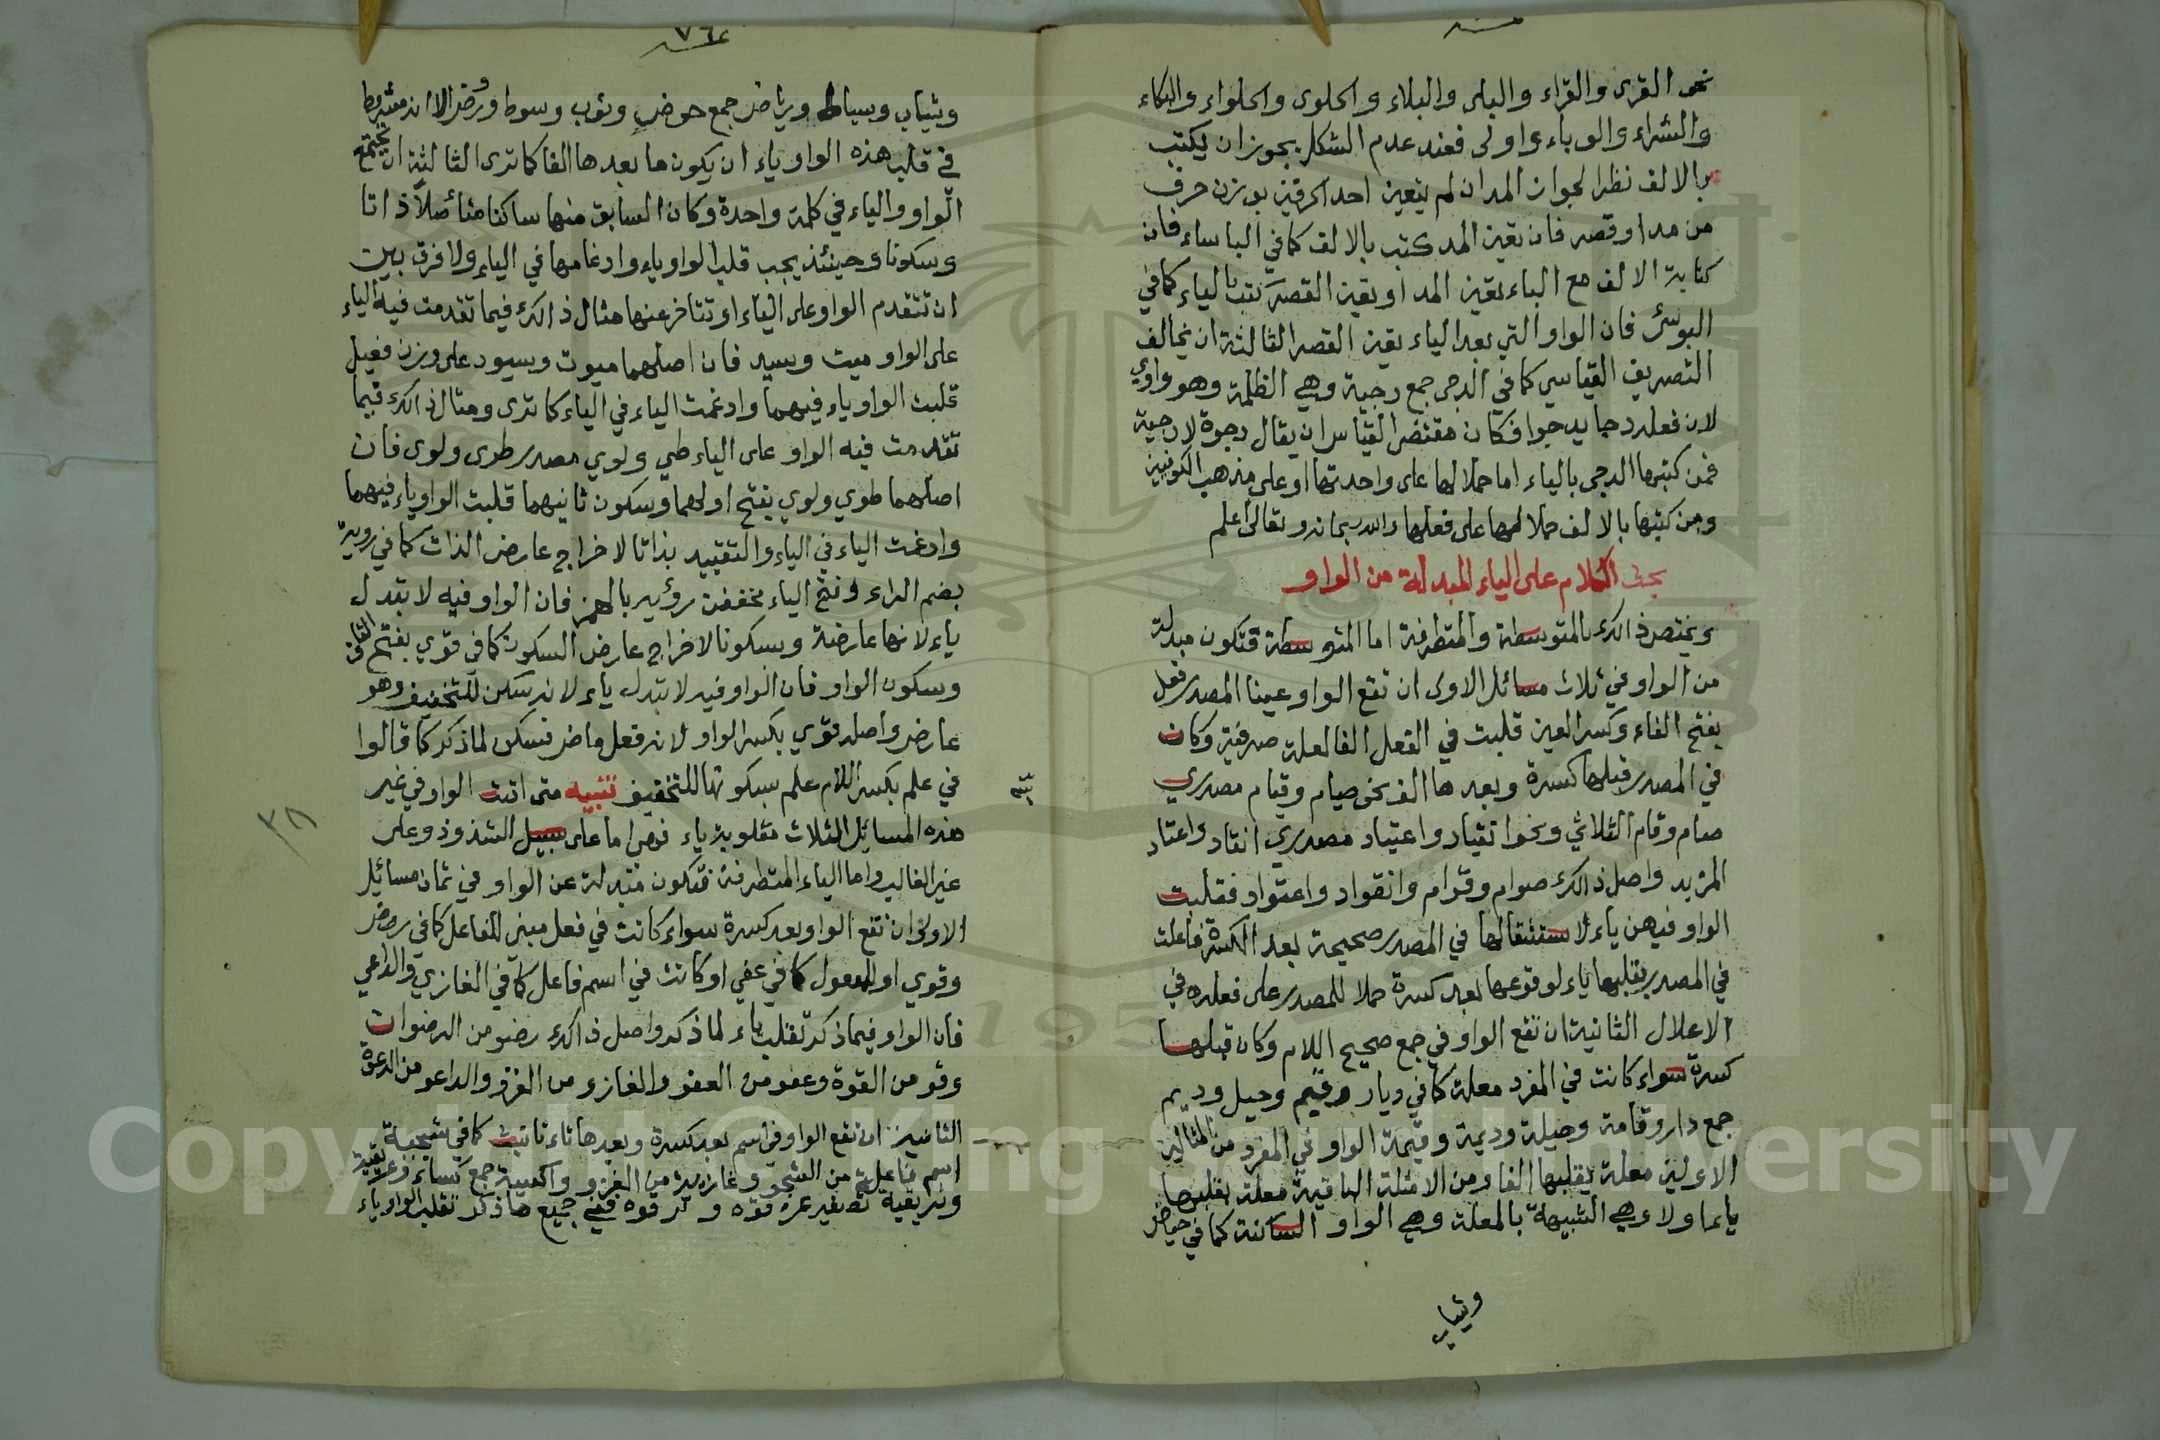 نحو القرى والقراء والبلى والبلاء والحلوى والحلواء والبكاء
والشراء والوباء واولى فعند عدم الشكل يجوز ان يكتب
بالالف نظرا لجواز المد ان لم يتعين احد الحرفين بوزن حرف
من مد او قصر فان تعين المد كتب بالالف كما في الباساء فان
كتابة الالف مع الباء تعين المد او تعين القصر كتب بالياء كما في
البوسى فان الواو التي بعد الباء تعين القصر الثالثة ان يخالف
التصريف القياسي كما في الدجى جمع دجية وهي الظلمة وهو واوي
لان فعله دجا يدجوا فكان مقتضى القياس ان يقال دجوة لا دجية
فمن كتبها الدجى بالياء اما حملا لها على واحدتها او على مذهب الكوفيين
ومن كتبها بالالف حملا لها على فعلها والله سبحانه وتعالى اعلم
بحث الكلام على الياء المبدلة من الواو
ويختص ذالك بالمتوسطة والمتطرفة اما المتوسطة فتكون مبدلة
من الواو في ثلاث مسائل الاولى ان تقع الواو عينا لمصدر فعل
بفتح الفاء وكسر العين قلبت في الفعل الفا لعلة صرفية وكانت
في المصدر قبلها كسرة وبعدها الف نحو صيام وقيام مصدري
صام وقام الثلاثي ونحو انقياد واعتياد مصدري انقاد واعتاد
المزيد واصل ذالك صوام وقوام وانقواد واعتواد فقلبت
الواو فيهن ياء لاستثقالها في المصدر صحيحة بعد الكسرة فاعلت
في المصدر بقلبها ياء لوقوعها بعد كسرة حملا للمصدر على فعله في
الاعلال الثانية ان تقع الواو في جمع صحيح اللام وكان قبلها
كسرة سواء كانت في المفرد معلة كما في ديار وقيم وحيل وديم
جمع دار وقامة وحيلة وديمة وقيمة الواو في المفرد من المثالين
الاولين معلة بقلبها الفا ومن الامثلة الباقية معلة بقلبها
ياء اولا وهي الشبيهة بالمعلة وهي الواو الساكنة كما في حياض
وثياب
٧٦
وثياب وسياط ورياض جمع حوض وثوب وسوط وروض الا انه مشترط
في قلب هذه الواو ياء ان يكون ما بعدها الفا كما ترى الثالثة ان تجتمع
الواو والياء في كلمة واحدة وكان السابق منها ساكنا متأصلا ذاتا
وسكونا وحينئذ يجب قلب الواو ياء وادغامها في الياء ولا فرق بين
ان تتقدم الواو على الياء او تتاخر عنها مثال ذالك فيما تقدمت فيه الياء
على الواو ميت وسيد فان اصلهما ميوت وسيود على وزن فعيل
قلبت الواو ياء فيهما وادغمت الياء في الياء كما ترى ومثال ذالك فيما
تقدمت فيه الواو على الياء طي ولوي مصدر طوى ولوى فان
اصلهما طوي ولوي بفتح اولهما وسكون ثانيهما قلبت الواو ياء فيهما
وادغمت الياء في الياء والتقييد بذاتا لاخراج عارض الذات كما في روية
بضم الراء وفتح الياء مخففة رؤية بالهمز فان الواو فيه لا تبدل
ياء لانها عارضة وسكونا لاخراج عارض السكون كما في قوي بفتح القاف
وسكون الواو فان الواو فيه لا تبدل ياء لانه سكن للتخفيف وهو
عارض واصله قوي بكسر الواو لانه فعل ماض فسكن لما ذكر كما قالوا
في علم بكسر اللام علم بسكونها للتخفيف تنبيه متى اتت الواو في غير
هذه المسائل الثلاث مقلوبة ياء فهي اما على سبيل الشذوذ وعلى
غير الغالب واما الياء المتطرفة فتكون مبدلة عن الواو في ثمان مسائل
الاولى ان تقع الواو بعد كسرة سواء كانت في فعل مبني للفاعل كما في رضي
وقوي او للمفعول كما في عفي او كانت في اسم فاعل كما في الغازي والداعي
فان الواو فيما ذكر تقلب ياء لما ذكر واصل ذالك رضو من الرضوان
وقو من القوة وعفو من العفو والغازو من الغزو والداعو من الدعوة
الثانية ان تقع الواو في اسم بعد كسرة وبعدها تاء تانيث كما في شجية
اسم فاعلة من الشجو وغازية من الغزو واكسية جمع كساء وعريقية
وتريقية تصغير عرقوة وترقوة ففي جميع ما ذكر تقلب الواو ياء
٣٨